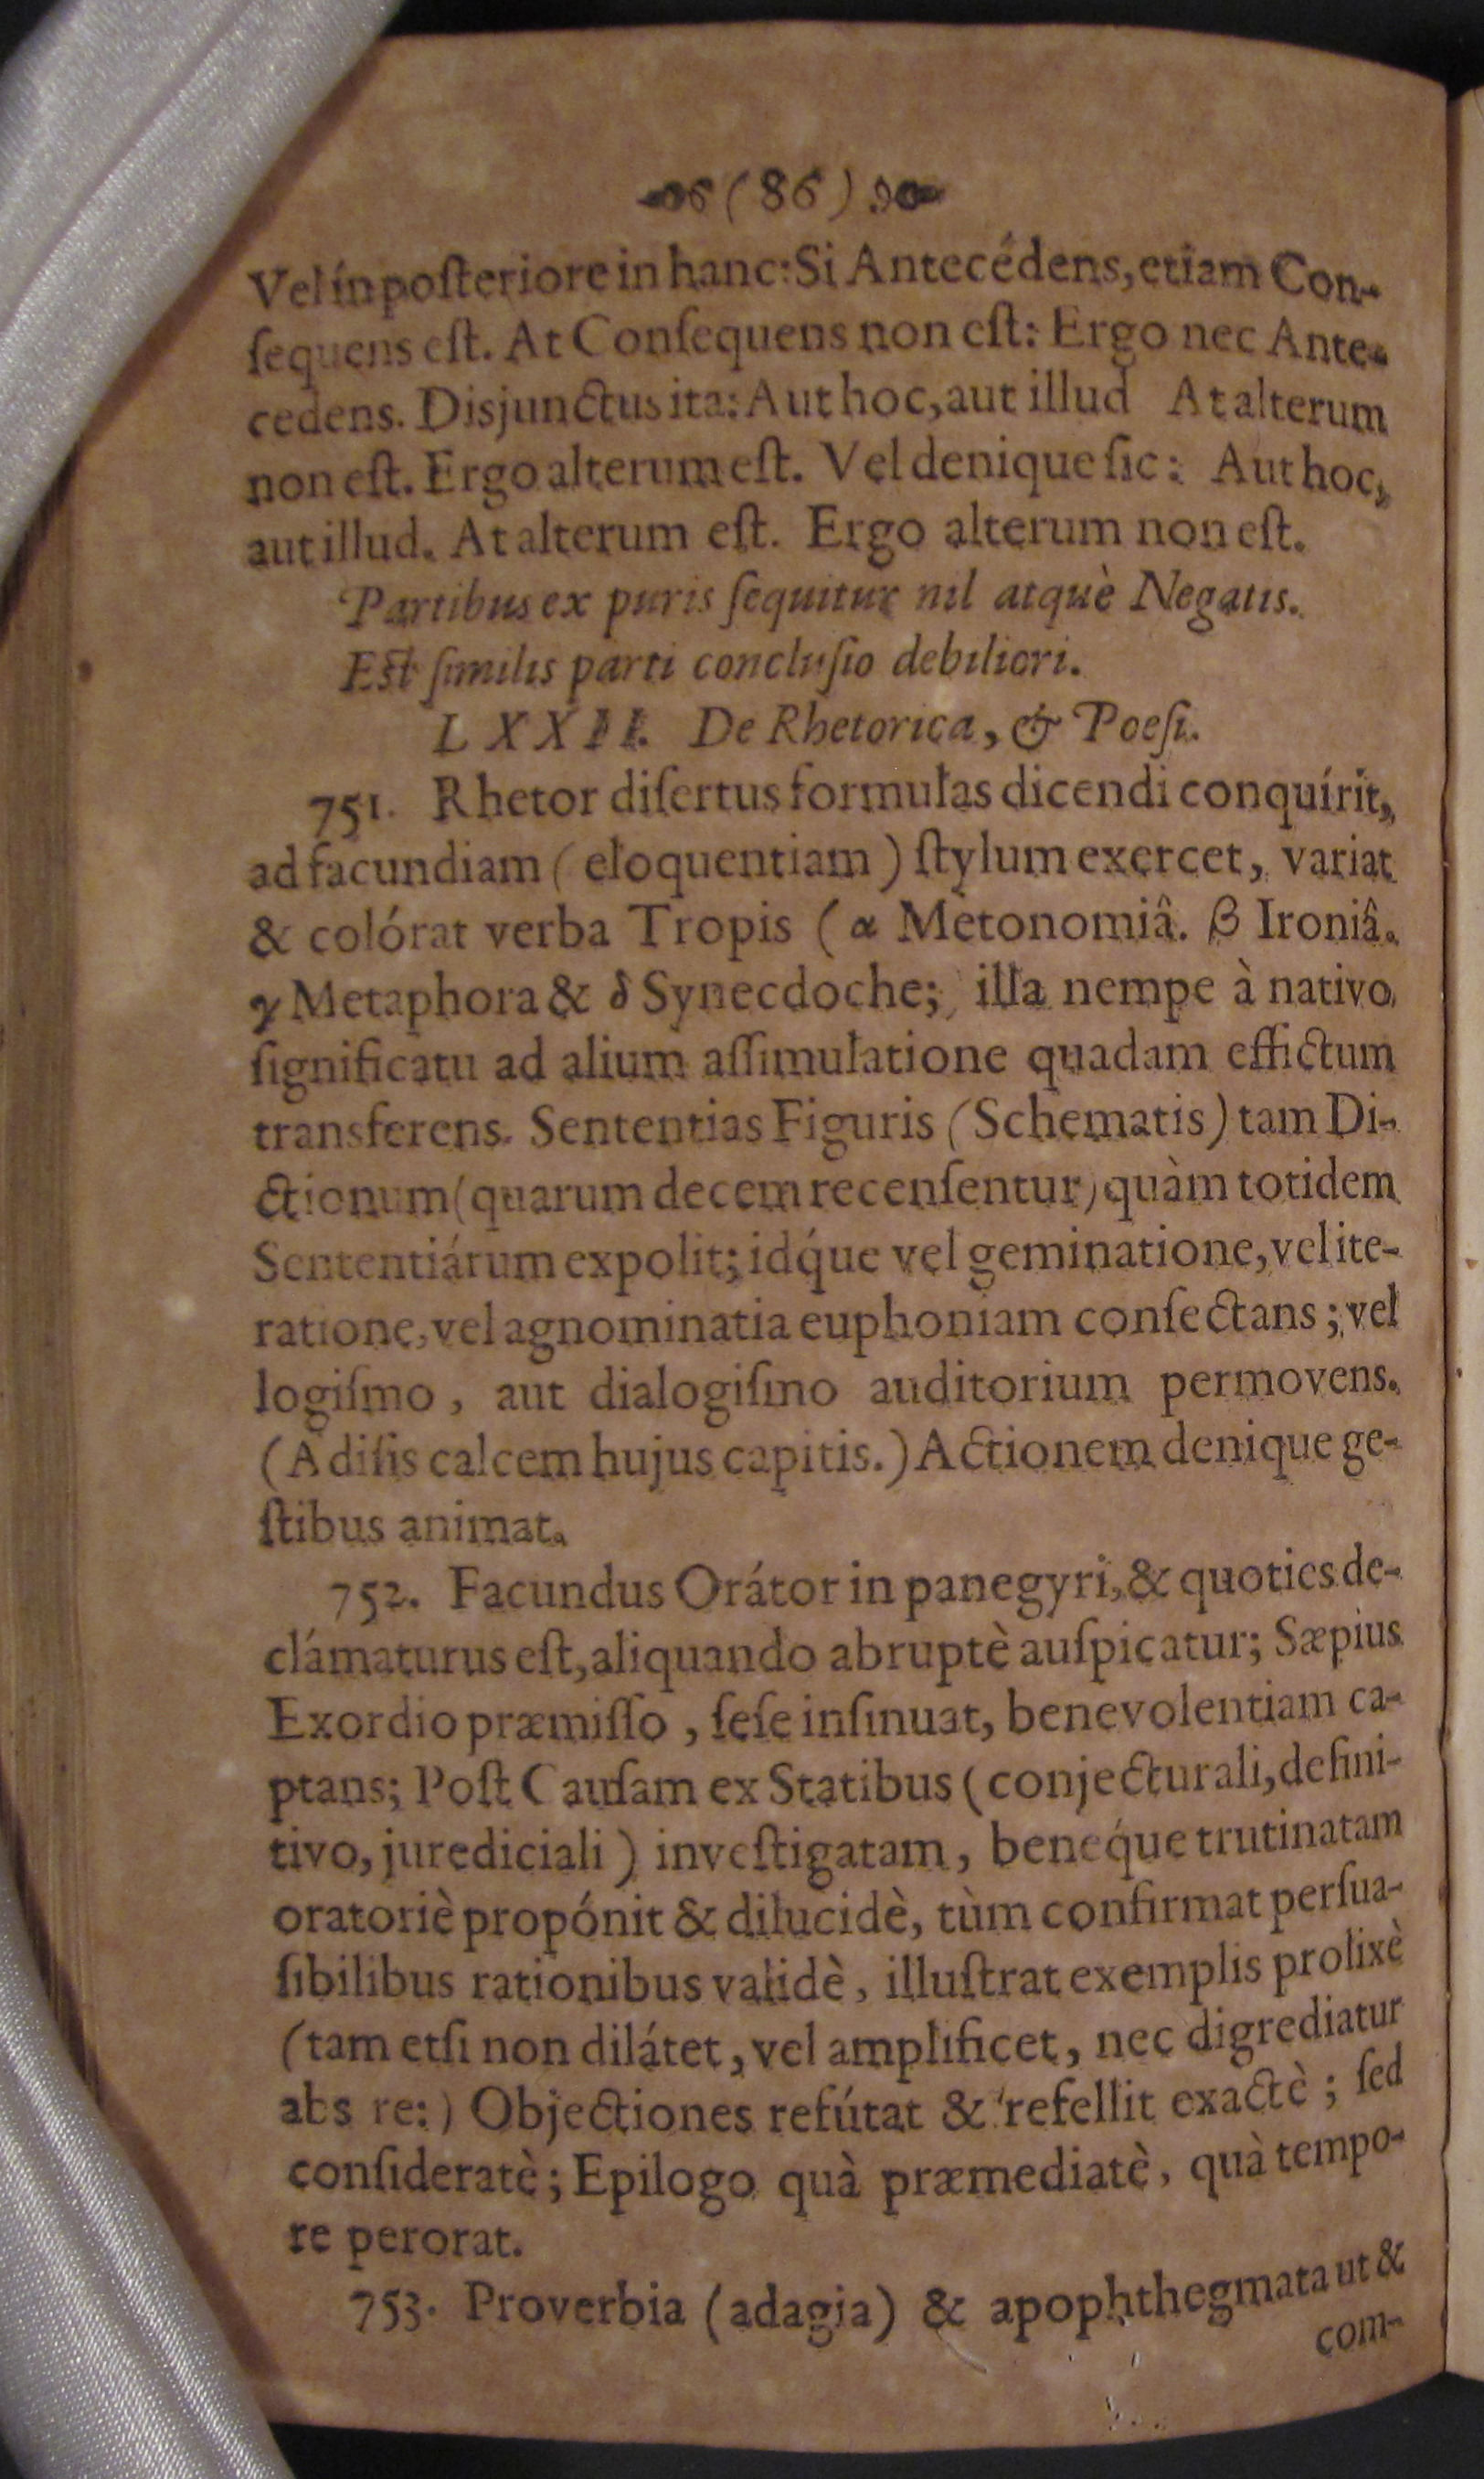 (86)
Vel in posteriore in hanc: Si Antecédens, etiam Con-
ſequens eſt. At Conſequens non eſt: Ergo nec Ante-
cedens. Disjunctus ita: Aut hoc, aut illud At alterum
non eſt. Ergo alterum eſt. Vel denique ſic: Aut hoc,
aut illud. At alterum eſt. Ergo alterum non eſt.
Partibus ex puris ſequitur nil atquè Negatis.
Est ſimilis parti concluſio debiliori.
LXXII. De Rhetorica, & Poeſi.
751. Rhetor diſertus formulas dicendi conquírit,
ad facundiam (eloquentiam) ſtylum exercet, variat
& colórat verba Tropis (α Metonomiâ. β Ironiâ.
γ Metaphora & δ Synecdoche; illa nempe à nativo
ſignificatu ad alium aſſimulatione quadam effictum
transferens. Sententias Figuris (Schematis) tam Di-
ctionum (quarum decem recenſentur) quàm totidem
Sententiárum expolit; idq́ue vel geminatione, vel ite-
ratione, vel agnominatia euphoniam conſectans; vel
logiſmo, aut dialogiſmo auditorium permovens.
(Adiſis calcem hujus capitis.) Actionem denique ge-
ſtibus animat.
752. Facundus Orátor in panegyri, & quoties de-
clámaturus eſt, aliquando abruptè auſpicatur; Sæpius
Exordio præmiſſo, ſeſe inſinuat, benevolentiam ca-
ptans; Poſt Cauſam ex Statibus (conjecturali, defini-
tivo, jurediciali) inveſtigatam, beneq́ue trutinatam
oratoriè propónit & dilucidè, tùm confirmat perſua-
ſibilibus rationibus validè, illuſtrat exemplis prolixè
(tam etſi non dilátet, vel amplificet, nec digrediatur
abs re:) Objectiones refútat & refellit exactè; ſed
conſideratè; Epilogo quà præmediatè, quà tempo-
re perorat.
753. Proverbia (adagia) & apophthegmata ut &
com-